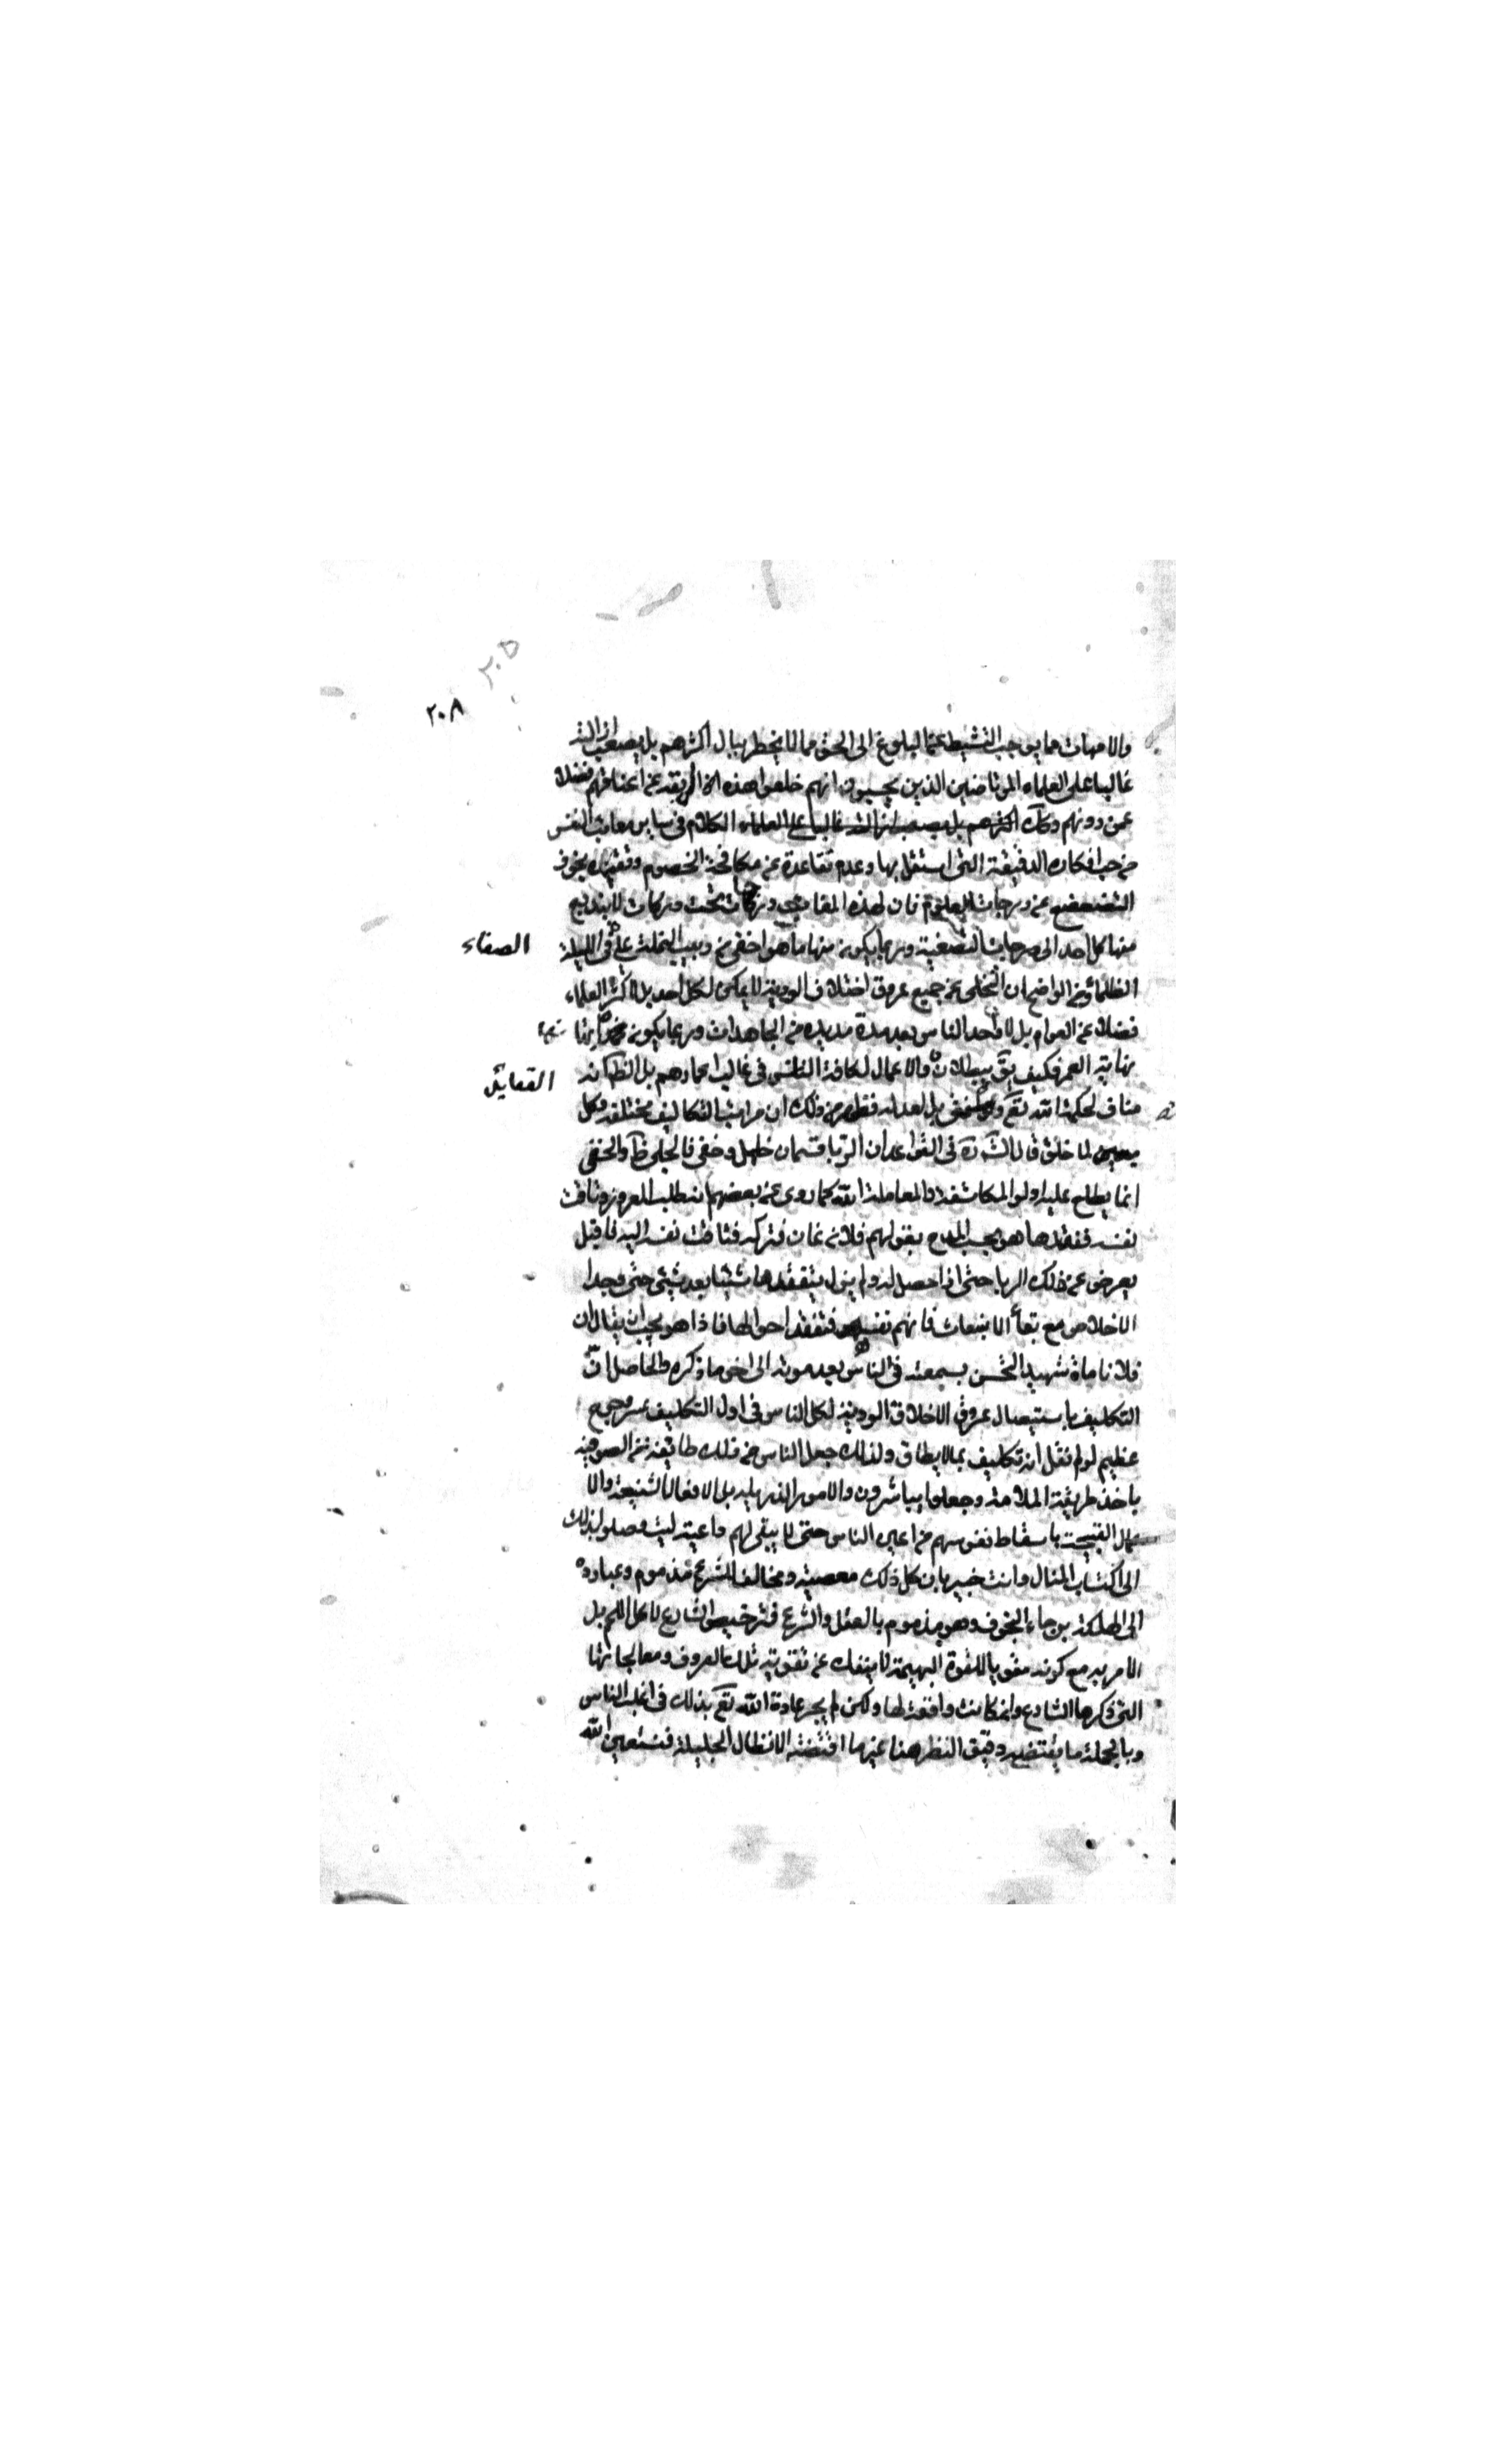 ٢٠٥
٢٠٨
والامهات مما يوجب التشبط عنها البلوغ الى الحق مما لا يخطر ببال اكثرهم بل يصعب ازالته
غالبا على العلماء المرتاضين الذين يحسبون انهم خلعوا هذه الربقة عن اعناقهم فضلا
عمن دونهم وكك الكلام في ساير معايب النفس
من حب افكاره الدقيقة التي استقل بها وعدم تقاعده عن مكافحة الخصوم وتقيده بخوف
عن درجات العلوم فان لهذه المقامات درجات تحت دركات لا يتدرج
منها كل احد الى درجات التصفية وربما يكون منها ما هو اخفى من دبيب النملة في الليلة
الصفاء
الظلماء ومن الواضح ان التخلي عن جميع عروق اختلاف الردية لا يمكن لكل احد بل لاكثر العلماء
فضلا عن العوام بل لاوحد الناس بعد مدة مديدة من المجاهدات وربما يكون
نهاية العمر فكيف يق ببطلان والاعمال لكافة الناس في غالب اعمارهم بل الظ كانه
القعايل
مناف لحكمة الله تع بل لعدله فظهر من ذلك ان مراتب التكاليف مختلفة وكل
ميسر لما خلق قال الش ره في القواعد ان الريا قسمان جلي وخفي فالجلي ظ والخفي
انما يطلع عليه اولو المكاشفة والمعاملة لله كما روى عن بعضهم انه طلب الغزو وتاقت
نفسه ففقدها هو يحب المدح بقولهم فلان غاز فتركه فتاقت نفسه اليه فاقبل
يعرض عن ذلك الريا حتى اذا حصل له ولم يزل يتفقدها شيئا بعد شيئ حتى وجد
الاخلاص مع بقاء الانبعاث فاتهم نفسه فتفقد احوالها فاذا هو يحب ان يقال ان
فلانا مات شهيدا لتحسن سمعته في الناس بعد موته الى اخر ما ذكره والحاصل ان
التكليف باستيصال عروق الاخلاق الردية لكل الناس في اول التكليف عسر وحرج
عظيم لو لم نقل انه تكليف بما لا يطاق ولذلك جعل الناس من ذلك طايفة من الصوفية
باخذ طريقة الملامة وجعلوا يباشرون والامور الرذيلة بل الافعال الشنيعة والا
عمال القبيحة باسقاط نفوسهم من اعين الناس حتى لا يبقى لهم داعية وصلوا بذلك
الى اكتساب المنال وانت خبير بان كل ذلك معصية ومخالف للشرع مذموم
الى الهلكة برجاء الخوف وهو مذموم بالعقل والشرع فترخيص الشارع لاكل اللحم بل
الامر به مع كونه مقويا للقوة البهيمة لا ينفك عن تقوية تلك العروق ومعالجاتها
التي ذكرها الشارع وان كانت دافعة لها ولكن لم يجر عادة الله تع بذلك في اغلب الناس
وبالجملة ما يقتضيه دقيق النظر هنا غير ما اقتضته الانظار الجليلة فنستعين الله